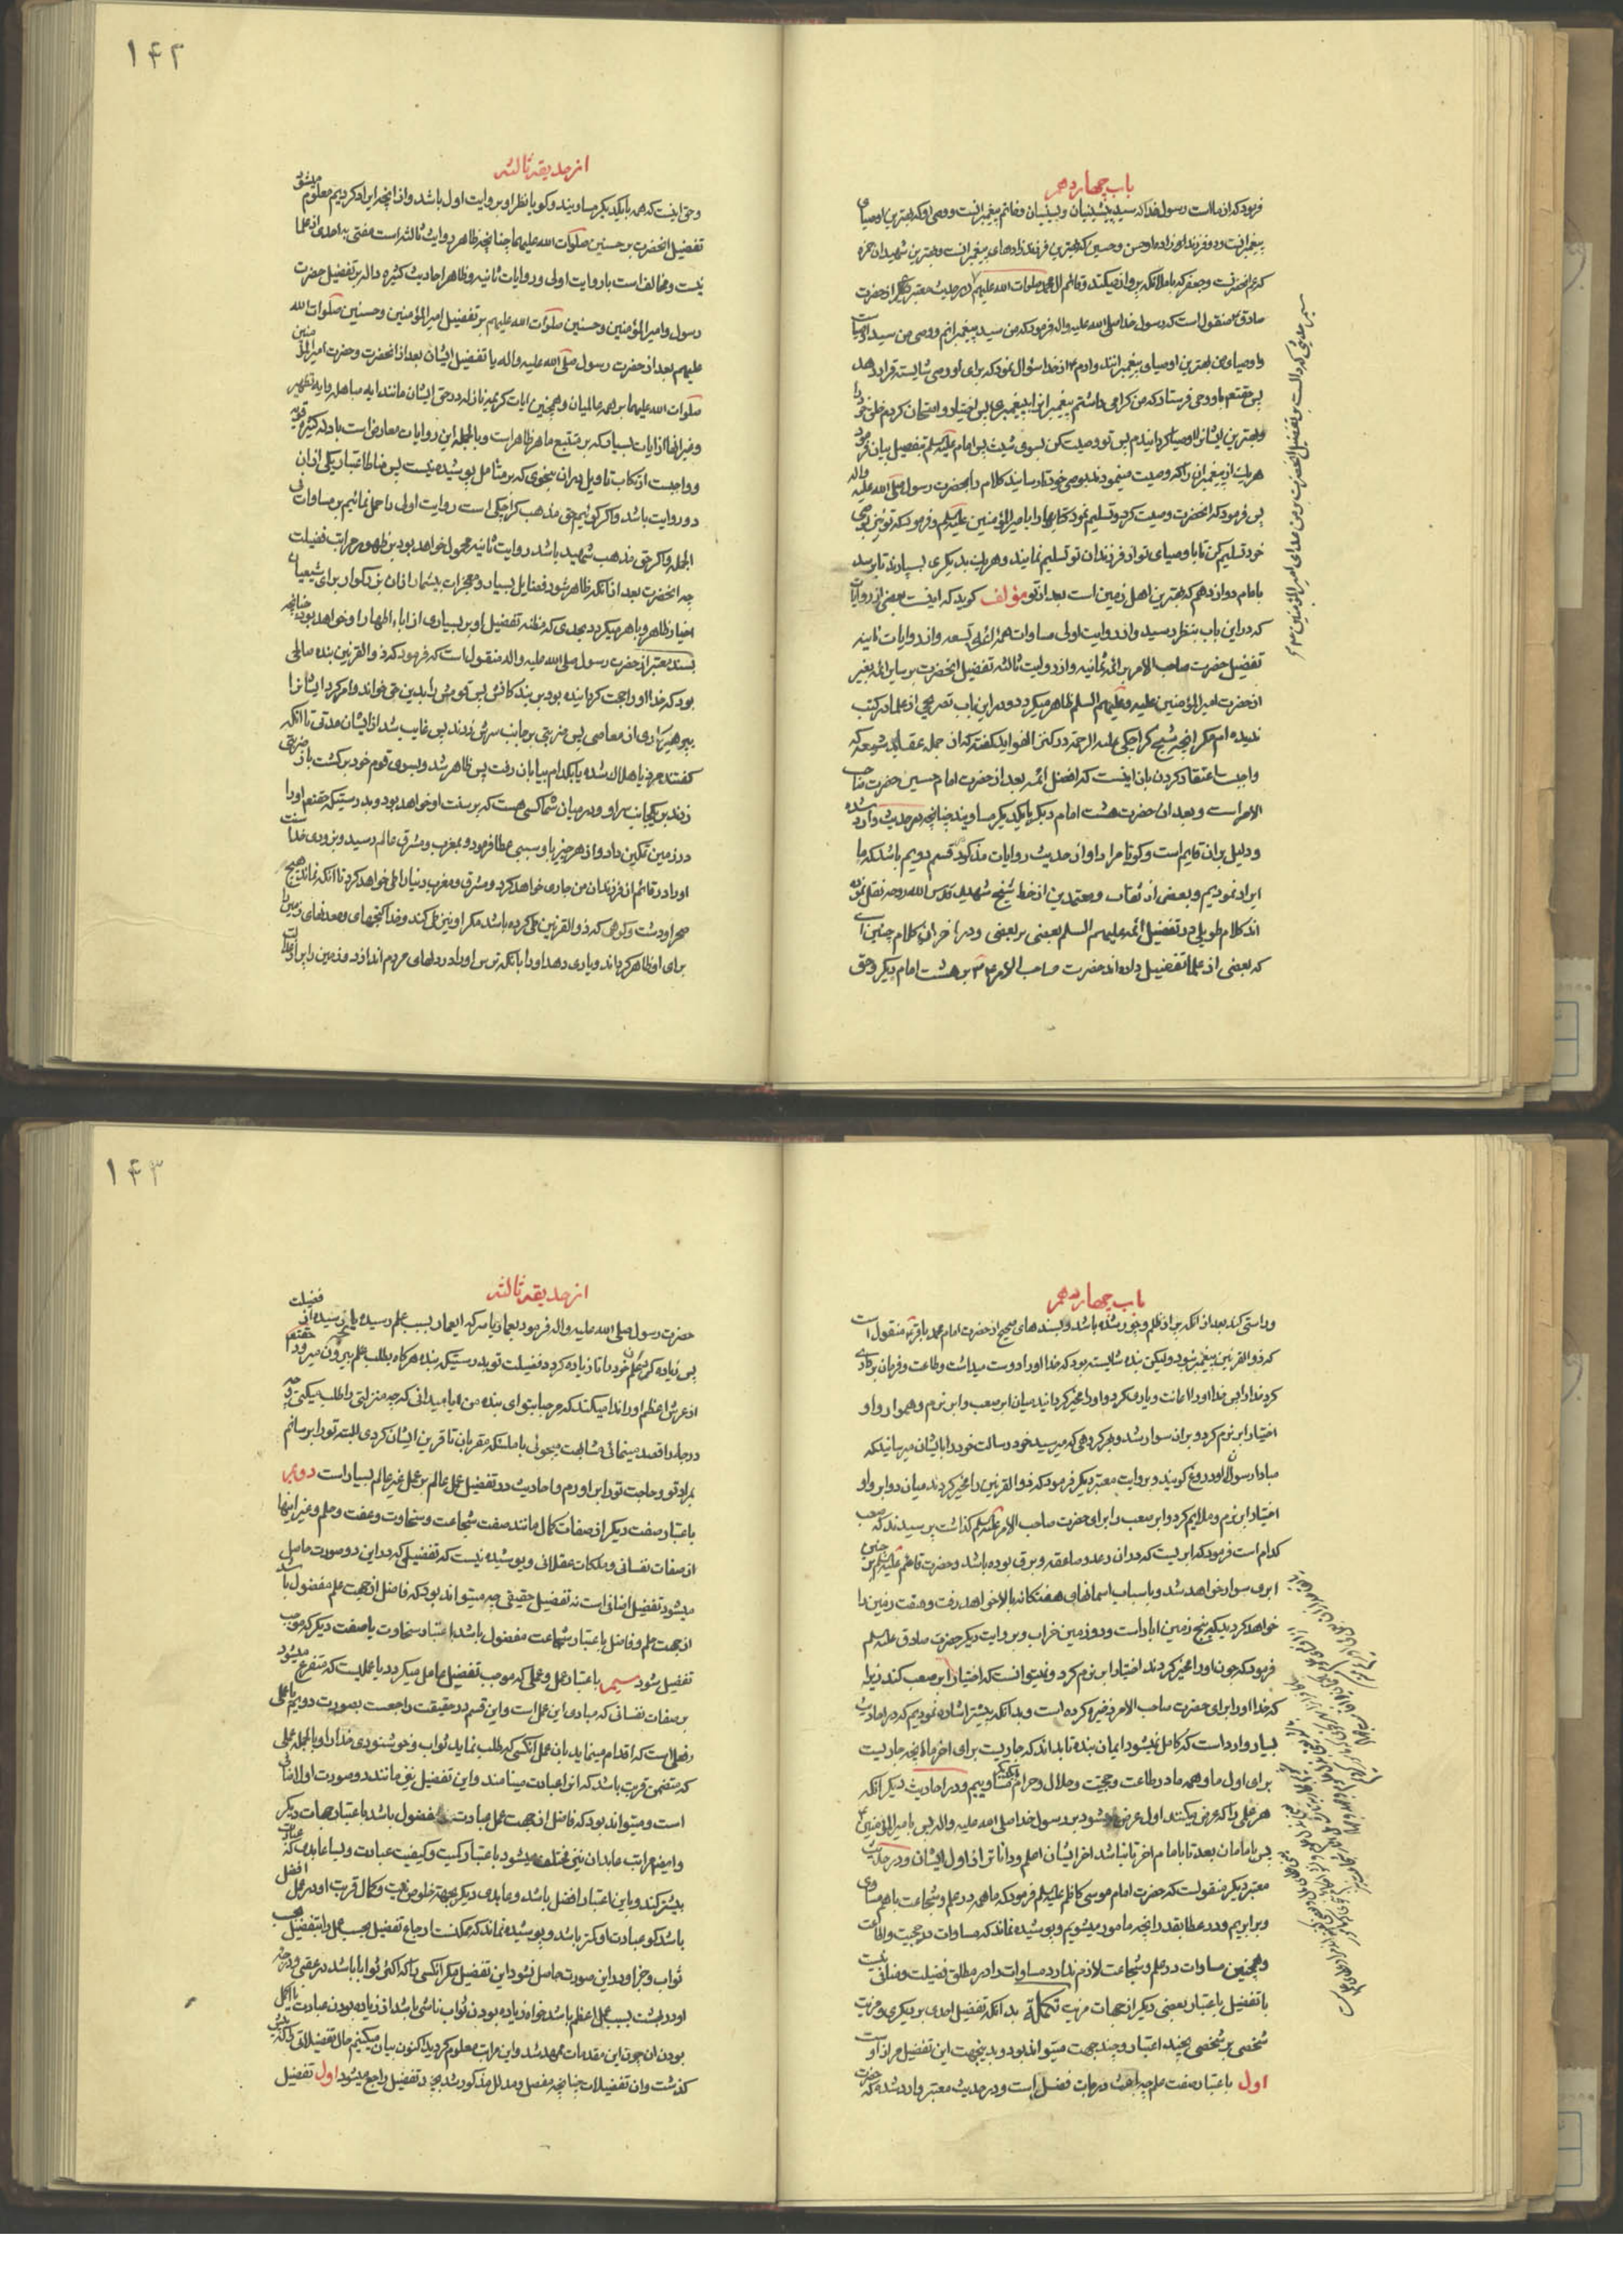 باب چهاردهم
فرمود که از ماست رسول خدا که سید پیشینیان و پسینیان و خاتم پیغمبرانست و وصی او که بهترین اوصیای
پیغمبرانست و دو فرزندزاده او حسن و حسین که بهترین فرزندزادهای پیغمبرانست و بهترین شهیدان حمزه
که عم انحضرتست و جعفر که با ملائکه پرواز میکند و قائم ال محمد صلوات الله علیهم و در حدیث معتبر دیگر از حضرت
صادق ع منقول است که رسول خدا صلی الله علیه واله فرمود که من سید پیغمبرانم و وصی من سید اوصیاست
و اوصیای من بهترین اوصیای پیغمبرانند و ادم ع از خدا سؤال نمود که برای او وصی شایسته قرار دهد
پس حقتعم باو وحی فرستاد که من گرامی داشتم پیغمبرانرا به پیغمبری پس اختیار و امتحان کردم خلق خود را
و بهترین ایشانرا اوصیا گردانیدم پس تو وصیت کن بسوی شیث پس امام علیه السلم تفصیل بیان فرمود
هر یک از پیغمبران را که وصیت مینمودند بوصی خود تا رسانید کلام را بحضرت رسول صلی الله علیه واله
پس فرمود که انحضرت وصیت کرد و تسلیم نمود کتابها را بامیرالمؤمنین علیه السلم و فرمود که تو نیز بوصی
خود تسلیم کن تا باوصیای تو از فرزندان تو تسلیم نمایند و هر یک بدیگری بسپارند تا برسد
بامام دوازدهم که بهترین اهل زمین است بعد از تو مؤلف گوید که اینست بعضی از روایات
که در این باب بنظر رسید و از روایت اولی مساوات همه ائمه تسعه و از روایات ثانیه
تفضیل حضرت صاحب الامر بر ائمه ثمانیه و از روایت ثالثه تفضیل انحضرت بر سایر ائمه بغیر
از حضرت امیرالمؤمنین علیه و علیهم السلم ظاهر میگردد و در این باب تصریحی از علما در کتب
ندیده ام مگر انچه شیخ کراجکی علیه الرحمة در کنز الفواید گفته که از جمله عقاید شیعه که
واجبست اعتقاد کردن بان اینست که افضل ائمه بعد از حضرت امام حسین حضرت صاحب
الامر است و بعد از ان حضرت هشت امام دیگر با یکدیگر مساویند چنانچه در حدیث وارد شده
و دلیل بر ان قایم است و گویا مراد او از حدیث روایات مذکوره قسم دویم باشد که ما
ایراد نمودیم و بعضی از ثقات و معتمدین از خط شیخ شهید قدس الله روحه نقل نموده
اند کلام طویلی در تفضیل ائمه علیهم السلم بعضی بر بعضی و در اخر ان کلام چنین است
که بعضی از علما تفضیل داده اند حضرت صاحب الامر ع را بر هشت امام دیگر و حق
۱۴۲
از حدیقه ثالثه
و حق اینست که همه با یکدیگر مساویند و گویا نظر او بر روایت اول باشد و از انچه ایراد کردیم معلوم میشود
تفضیل انحضرت بر حسنین صلوات الله علیهما چنانچه ظاهر روایت ثالثه است مفتی به احدی از علما
نیست و مخالف است با روایت اولی و روایات ثانیه و ظاهر احادیث کثیره داله بر تفضیل حضرت
رسول و امیرالمؤمنین و حسنین صلوات الله علیهم بر تفضیل امیرالمؤمنین و حسنین صلوات الله
علیهم بعد از حضرت رسول صلی الله علیه واله یا تفضیل ایشان بعد از انحضرت و حضرت امیرالمؤمنین
صلوات الله علیهما بر همه عالمیان و همچنین ایات کریمه نازله در حق ایشان مانند ایه مباهله و ایه تطهیر
و غیر انها از ایات بسیار که بر متتبع ماهر ظاهر است و بالجمله این روایات معارض است با ادله کثیره قویه
و واجبست ارتکاب تاویل در ان بنحوی که بر متامل پوشیده نیست پس مناط اعتبار یکی از ان
دو روایت باشد و اگر گوئیم حق مذهب کراجکی است روایت اولی را حمل نمائیم بر مساوات فی
الجمله و اگر حق مذهب شهید باشد روایت ثانیه محمول خواهد بود بر ظهور مراتب فضیلت
چه انحضرت بعد از انکه ظاهر شود فضایل بسیار و معجزات بیشمار از ان بزرگوار برای شیعیان
اخیار ظاهر و باهر میگردد بحدی که مظنه تفضیل او بر بسیاری از اباء اطهار او خواهد بود چنانچه
بسند معتبر از حضرت رسول صلی الله علیه واله منقول است که فرمود که ذوالقرنین بنده صالحی
بود که خدا او را حجت گردانیده بود بر بندگانش پس قومش را بدین حق خواند و امر کرد ایشانرا
بپرهیزکاری از معاصی پس ضربتی بر جانب سرش زدند پس غایب شد از ایشان مدتی تا انکه
گفتند مرد یا هلاک شد یا بکدام بیابان رفت پس ظاهر شد و بسوی قوم خود برگشت باز ضربتی
زدند بر یکجانب سر او و در میان شما کسی هست که بر سنت او خواهد بود و بدرستیکه حقتعم او را
در زمین تمکین داد و از هر چیز باو سببی عطا فرمود و بمغرب و مشرق عالم رسید و بزودی خدا سنت
او را در قائم از فرزندان من جاری خواهد کرد و مشرق و مغرب دنیا را طی خواهد کرد تا انکه نماند هیچ
صحرا و دشت و کوهی که ذوالقرنین طی کرده باشد مگر او نیز طی کند و خدا گنجهای و معدنهای زمین را
برای او ظاهر گرداند و یاری دهد او را بانکه ترس او را در دلهای مردم اندازد و زمین را پر از عدالت
باب چهاردهم
و راستی کند بعد از انکه پر از ظلم و جور شده باشد و بسندهای صحیح از حضرت امام محمد باقر ع منقول است
که ذوالقرنین پیغمبر نبود ولیکن بنده شایسته بود که خدا او را دوست میداشت و طاعت و فرمان برداری
کرد خدا را پس خدا او را اعانت و یاری کرد و او را مخیر گردانید میان ابر صعب و ابر نرم و هموار و او
اختیار ابر نرم کرد و بر ان سوار شد و بهر گروهی که میرسید خود رسالت خود را بایشان میرسانید که
مبادا رسولان او دروغ گویند و بروایت معتبر دیگر فرمود که ذوالقرنین را مخیر کردند میان دو ابر و او
اختیار ابر نرم و ملایم کرد و ابر صعب را برای حضرت صاحب الامر علیه السلم گذاشت پرسیدند که صعب
کدام است فرمود که ابریست که در ان رعد و صاعقه و برق بوده باشد و حضرت قائم علیه السلم بر چنین
ابری سوار خواهد شد و باسباب اسمانهای هفتگانه بالا خواهد رفت و هفت زمین را
خواهد گردید که پنج زمین ابادانست و دو زمین خراب و بروایت دیگر حضرت صادق علیه السلم
فرمود که چون او را مخیر کردند اختیار ابر نرم کرد و نمیتوانست که اختیار ابر صعب کند زیرا
که خدا او را برای حضرت صاحب الامر ذخیره کرده است و بدانکه پیشتر اشاره نمودیم که در احادیث
بسیار وارد است که کامل نمیشود ایمان بنده تا بداند که جاریست برای اخر ما انچه جاریست
برای اول ما و همه ما در طاعت و حجیت و حلال و حرام با یکدیگر مساوییم و در احادیث دیگر انکه
هر علمی را که عرض میکنند اول عرض میشود بر رسول خدا صلی الله علیه واله پس بامیرالمؤمنین ع
پس بامامان بعد تا بامام اخر تا نباشد اخر ایشان اعلم و داناتر از اول ایشان و در حدیث
معتبر دیگر منقولست که حضرت امام موسی کاظم علیه السلم فرمود که ما همه در علم و شجاعت با هم مساوی
و برابریم و در عطا بقدر انچه مامور میشویم و پوشیده نماند که مساوات در حجیت و اطاعت
و همچنین مساوات در علم و شجاعت لازم ندارد مساوات را در مطلق فضیلت و منافی نیست
با تفضیل باعتبار بعضی دیگر از جهات مزیت تکملة بدانکه تفضیل احدی بر دیگری و مزیت
شخصی بر شخصی بچند اعتبار و چند جهت میتواند بود و بدینجهت این تفضیل مراد است
اول باعتبار صفت علم چه باعث درجات فضل است و در حدیث معتبر وارد شده که حضرت
۱۴۳
از حدیقه ثالثه
حضرت رسول صلی الله علیه واله فرمود بعمار یاسر که ای عمار بسبب علم رسیده بانچه رسیده از فضیلت
پس زیاده کن علم خود را تا زیاده گردد فضیلت تو بدرستیکه بنده هرگاه بطلب علم بیرون میرود حقتعم
از عرش اعظم او را ندا میکند که مرحبا بتو ای بنده من ایا میدانی که چه منزلتی را طلب میکنی و چه
درجه را قصد مینمائی و مشابهت میجوئی با ملائکه مقربان تا قرین ایشان گردی البته تو را برسانم
بمراد تو و حاجت تو را بر اورم و احادیث در تفضیل عمل عالم بر عمل غیر عالم بسیار است دویم
باعتبار صفت دیگر از صفات کمال مانند صفت شجاعت و سخاوت و عفت و حلم و غیر اینها
از صفات نفسانی و ملکات عقلانی و پوشیده نیست که تفضیلی که در این دو صورت حاصل
میشود تفضیل اضافی است نه تفضیل حقیقی چه میتواند بود که فاضل از جهت علم مفضول باشد
از جهت حلم و فاضل باعتبار شجاعت مفضول باشد باعتبار سخاوت یا صفت دیگر که موجب
تفضیل شود سیم باعتبار عمل و عملی که موجب تفضیل عامل میگردد یا عملیست که متفرع میشود
بر صفات نفسانی که مبادی این عمل است و این قسم در حقیقت راجعست بصورت دویم یا عملی
و فعلیست که اقدام مینماید بان عمل انکسی که طلب نماید ثواب و خوشنودی خدا را و بالجمله عملی
که متضمن قربت باشد که انرا عبادت مینامند و این تفضیل نیز مانند دو صورت اول اضافی
است و میتواند بود که فاضل از جهت عمل عبادت مفضول باشد باعتبار جهات دیگر
و ایضا مراتب عابدان نیز مختلف میشود باعتبار کمیت و کیفیت عبادت و بسا عابدی که عبادت
بیشتر کند و باین اعتبار افضل باشد و عابدی دیگر بجهت خلوص نیت و کمال قربت او در عمل افضل
باشد گو عبادت او کمتر باشد و پوشیده نماند که ممکنست ارجاع تفضیل بحسب عمل را بتفضیل بحسب
ثواب و جزا و در این صورت حاصل نشود این تفضیل مگر انکسی را که اکثر ثوابا باشد در عقبی و درجه
او در بهشت بسبب عمل اعظم باشد خواه زیاده بودن ثواب ناشی باشد از زیاده بودن عبادت یا اکمل
بودن ان چون این مقدمات ممهد شد و این مراتب معلوم گردید اکنون بیان میکنیم حال تفضیلاتی را که پیش
گذشت و ان تفضیلات چنانچه مفصل و مدلل مذکور شد بچند تفضیل راجع میشود اول تفضیل